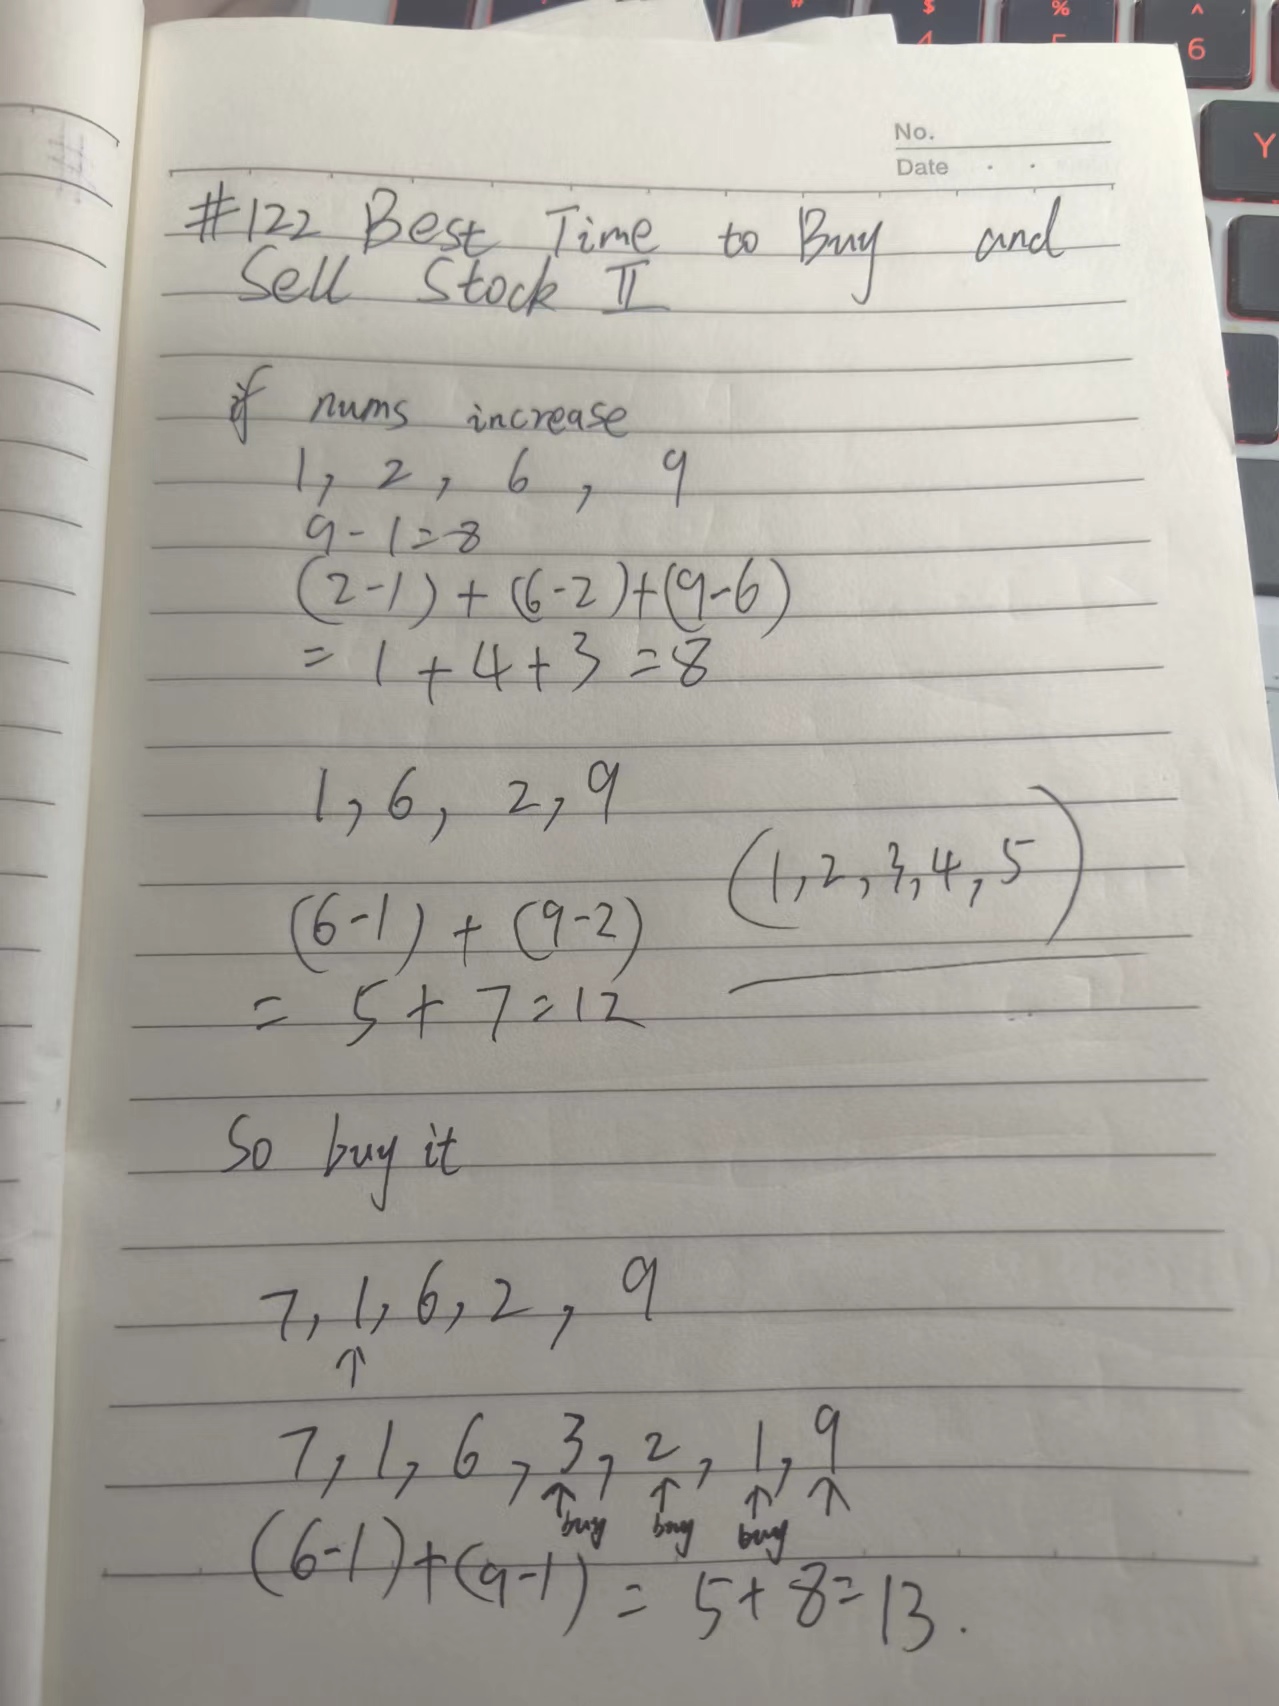 $
%
^
6
Y
No.
Date
#122 Best Time to Buy and
Sell Stock II
if nums increase
1, 2, 6, 9
9-1=8
(2-1)+(6-2)+(9-6)
= 1+4+3=8
1, 6, 2, 9
(1,2,3,4,5)
(6-1)+(9-2)
= 5+7=12
So buy it
7, 1, 6, 2, 9
↑
7, 1, 6, 3, 2, 1, 9
↑ ↑ ↑ ↑
buy buy buy
(6-1)+(9-1) = 5+8=13.